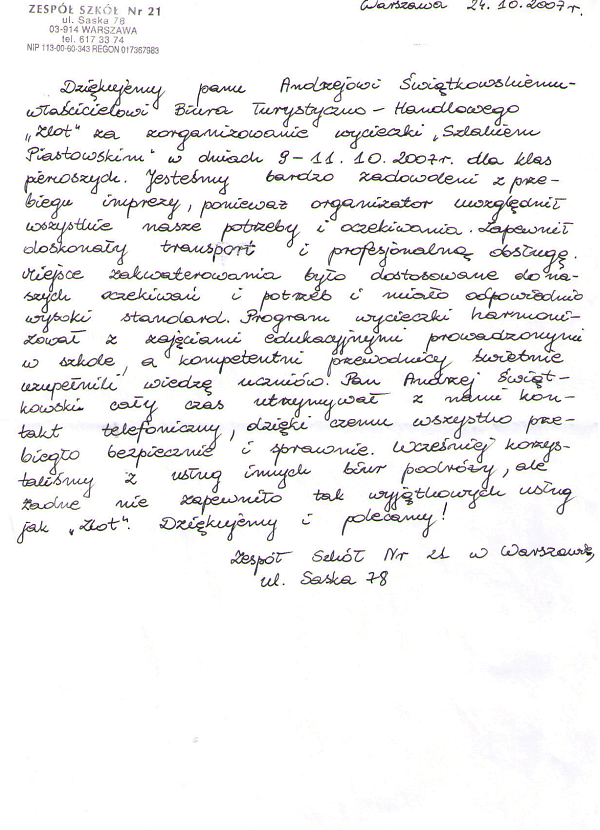 ZESPÓŁ SZKÓŁ Nr 21
ul. Saska 78
03-914 WARSZAWA
tel. 617 33 74
NIP 113-00-60-343 REGON 017367983
Warszawa 24.10.2007r.
Dziękujemy panu Andrzejowi Świątkowskiemu-
właścicielowi Biura Turystyczno-Handlowego
„Zlot" za zorganizowanie wycieczki „Szlakiem
Piastowskim" w dniach 9-11.10.2007r. dla klas
pierwszych. Jesteśmy bardzo zadowoleni z prze-
biegu imprezy, ponieważ organizator uwzględnił
wszystkie nasze potrzeby i oczekiwania. Zapewnił
doskonały transport i profesjonalną obsługę.
Miejsce zakwaterowania było dostosowane do na-
szych oczekiwań i potrzeb i miało odpowiednio
wysoki standard. Program wycieczki harmoni-
zował z zajęciami edukacyjnymi prowadzonymi
w szkole, a kompetentni przewodnicy świetnie
uzupełnili wiedzę uczniów. Pan Andrzej Świąt-
kowski cały czas utrzymywał z nami kon-
takt telefoniczny, dzięki czemu wszystko prze-
biegło bezpiecznie i sprawnie. Wcześniej korzys-
taliśmy z usług innych biur podróży, ale
żadne nie zapewniło tak wyjątkowych usług
jak „Zlot". Dziękujemy i polecamy!
Zespół Szkół Nr 21 w Warszawie,
ul. Saska 78